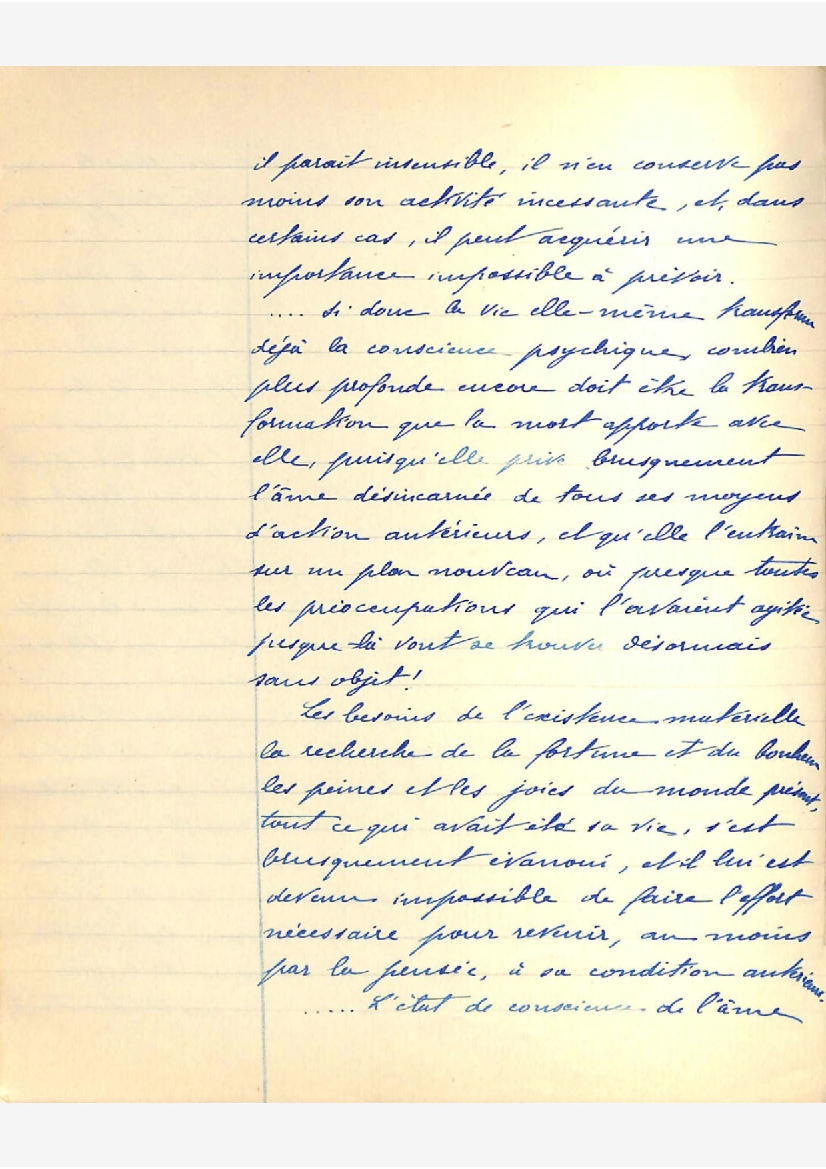 il parait insensible, il n'en conserve pas
moins son activité incessante, et, dans
certains cas, il peut acquérir une
importance impossible à prévoir.
.... Si donc la vie elle-même transforme
déjà la conscience psychique, combien
plus profonde encore doit être la trans-
formation que la mort apporte avec
elle, puisqu'elle prive brusquement
l'âme désincarnée de tous ses moyens
d'action antérieurs, et qu'elle l'entraine
sur un plan nouveau, où presque toutes
les préoccupations qui l'avaient agitée
jusque-là vont se trouver désormais
sans objet!
Les besoins de l'existence matérielle
la recherche de la fortune et du bonheur
les peines et les joies du monde présent,
tout ce qui avait été sa vie, s'est
brusquement évanoui, et il lui est
devenu impossible de faire l'effort
nécessaire pour revenir, au moins
par la pensée, à sa condition antérieure.
..... L'état de conscience de l'âme